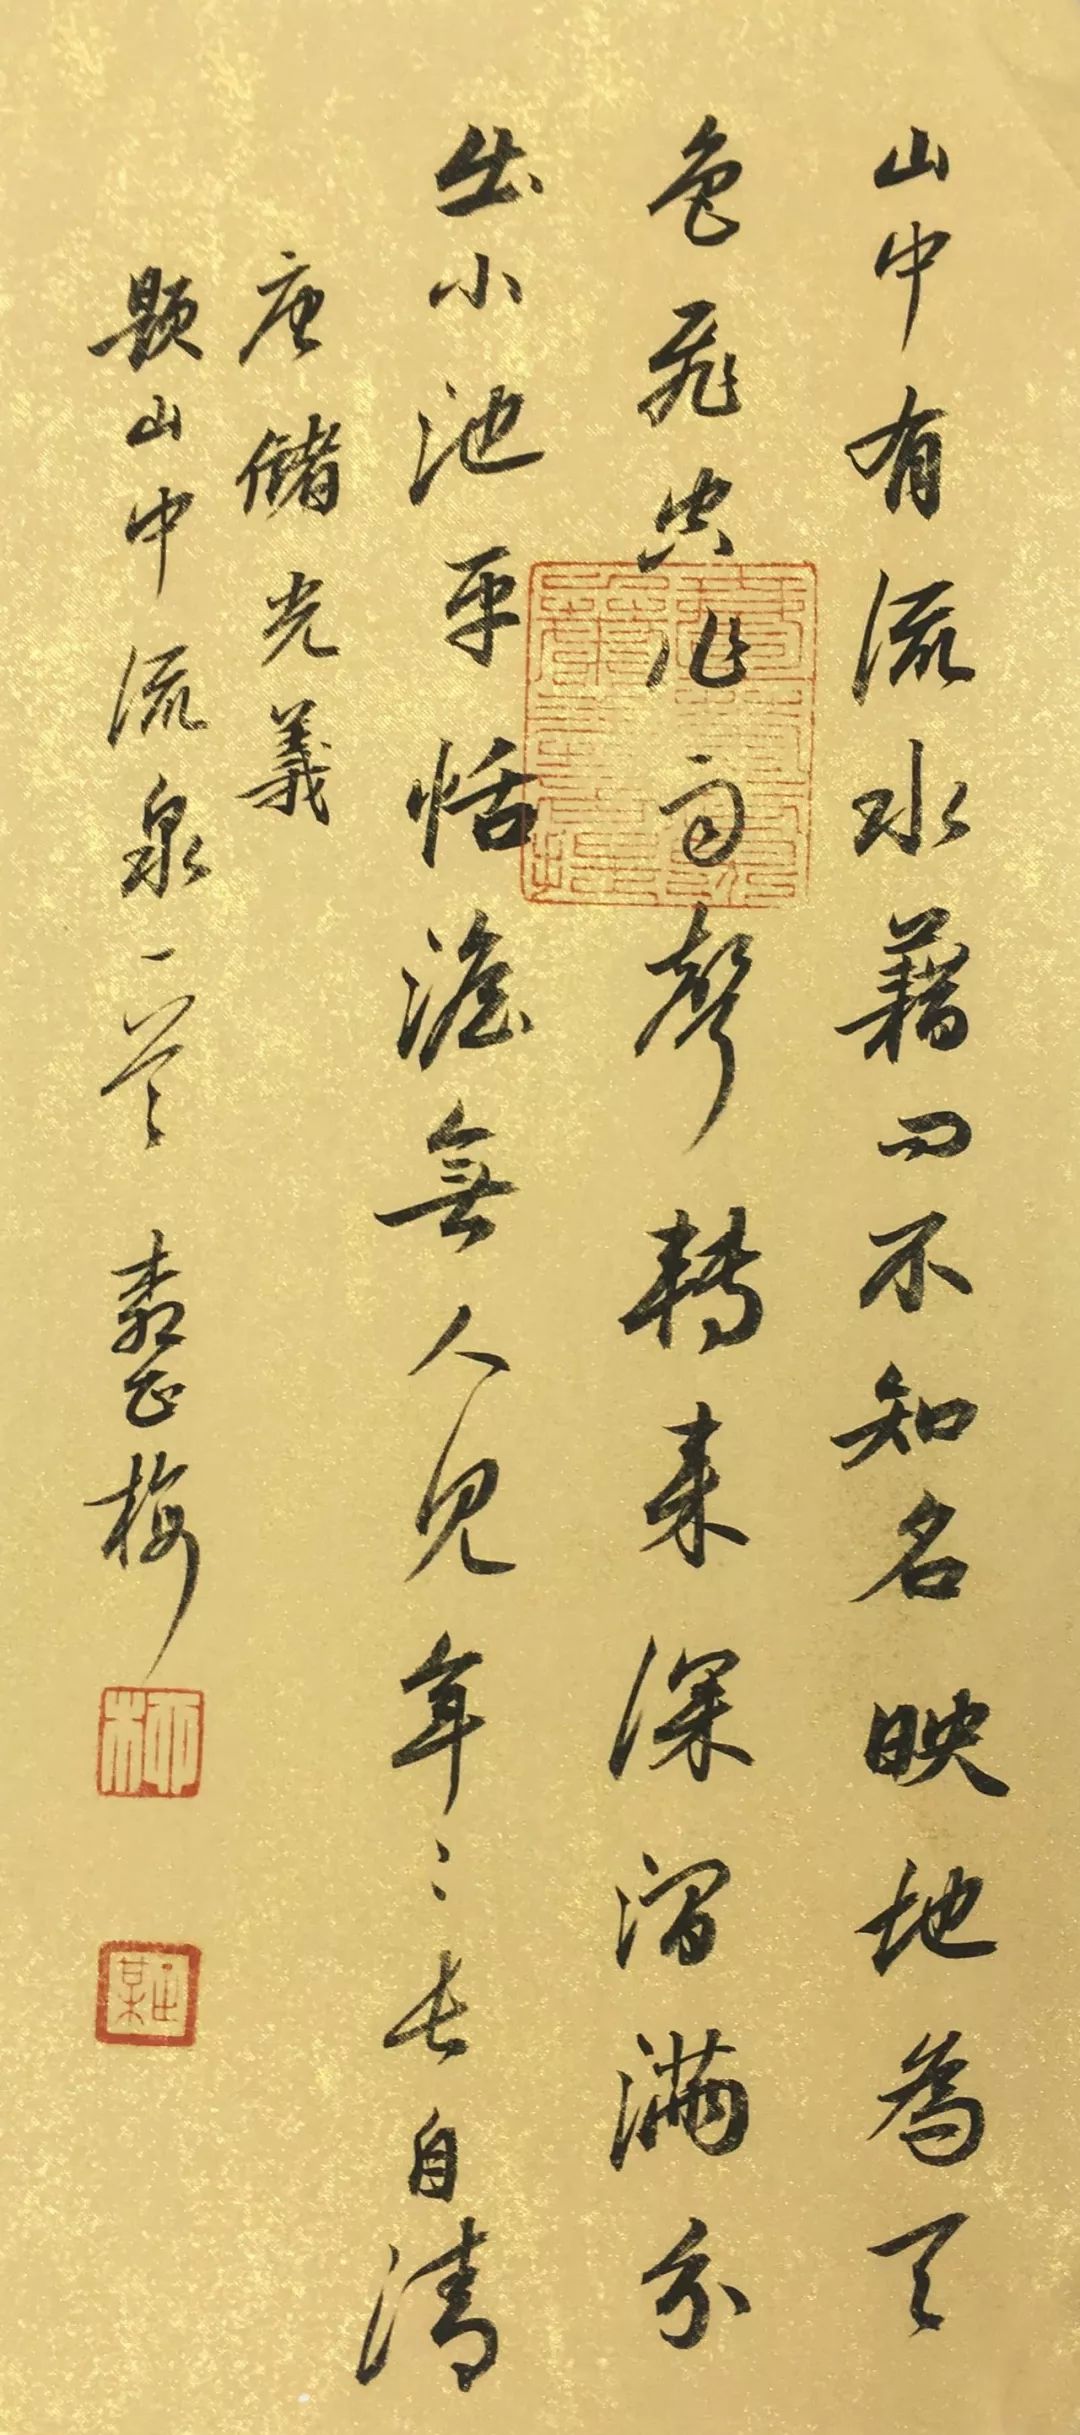 山中有流水藉问不知名映地為天
色飛空作雨聲轉来深澗滿分
出小池平恬澹無人見年〻長自清
唐儲光義
題山中流泉一首 正梅